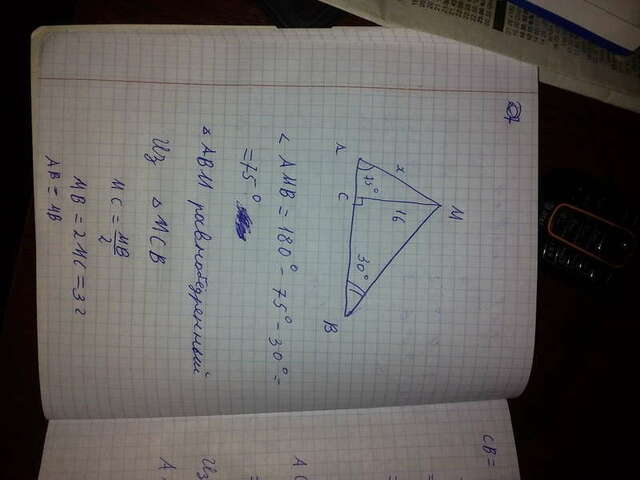 M
x
16
A
75°
C
30°
B
< AMB = 180° - 75° - 30° =
= 75°
△ ABM равнобедренный
Из △ MCB
MC = MB/2
MB = 2MC = 32
AB = MB
CB =
Из